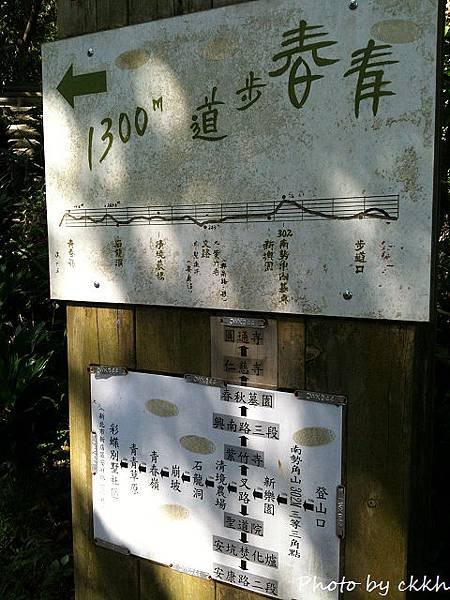 青春步道
1300m
步道口
302南勢角山三等三角點
新樂園
叉路
清境農場
石龍洞
青春嶺
圓通寺
仁慈寺
春秋墓園
興南路三段
紫竹寺
登山口
南勢角山302三等三角點
新樂園
叉路
清境農場
石龍洞
崩坡
青春嶺
青青草原
彩蝶別墅社區
聖道院
安坑焚化爐
安康路二段
Photo by ckkh